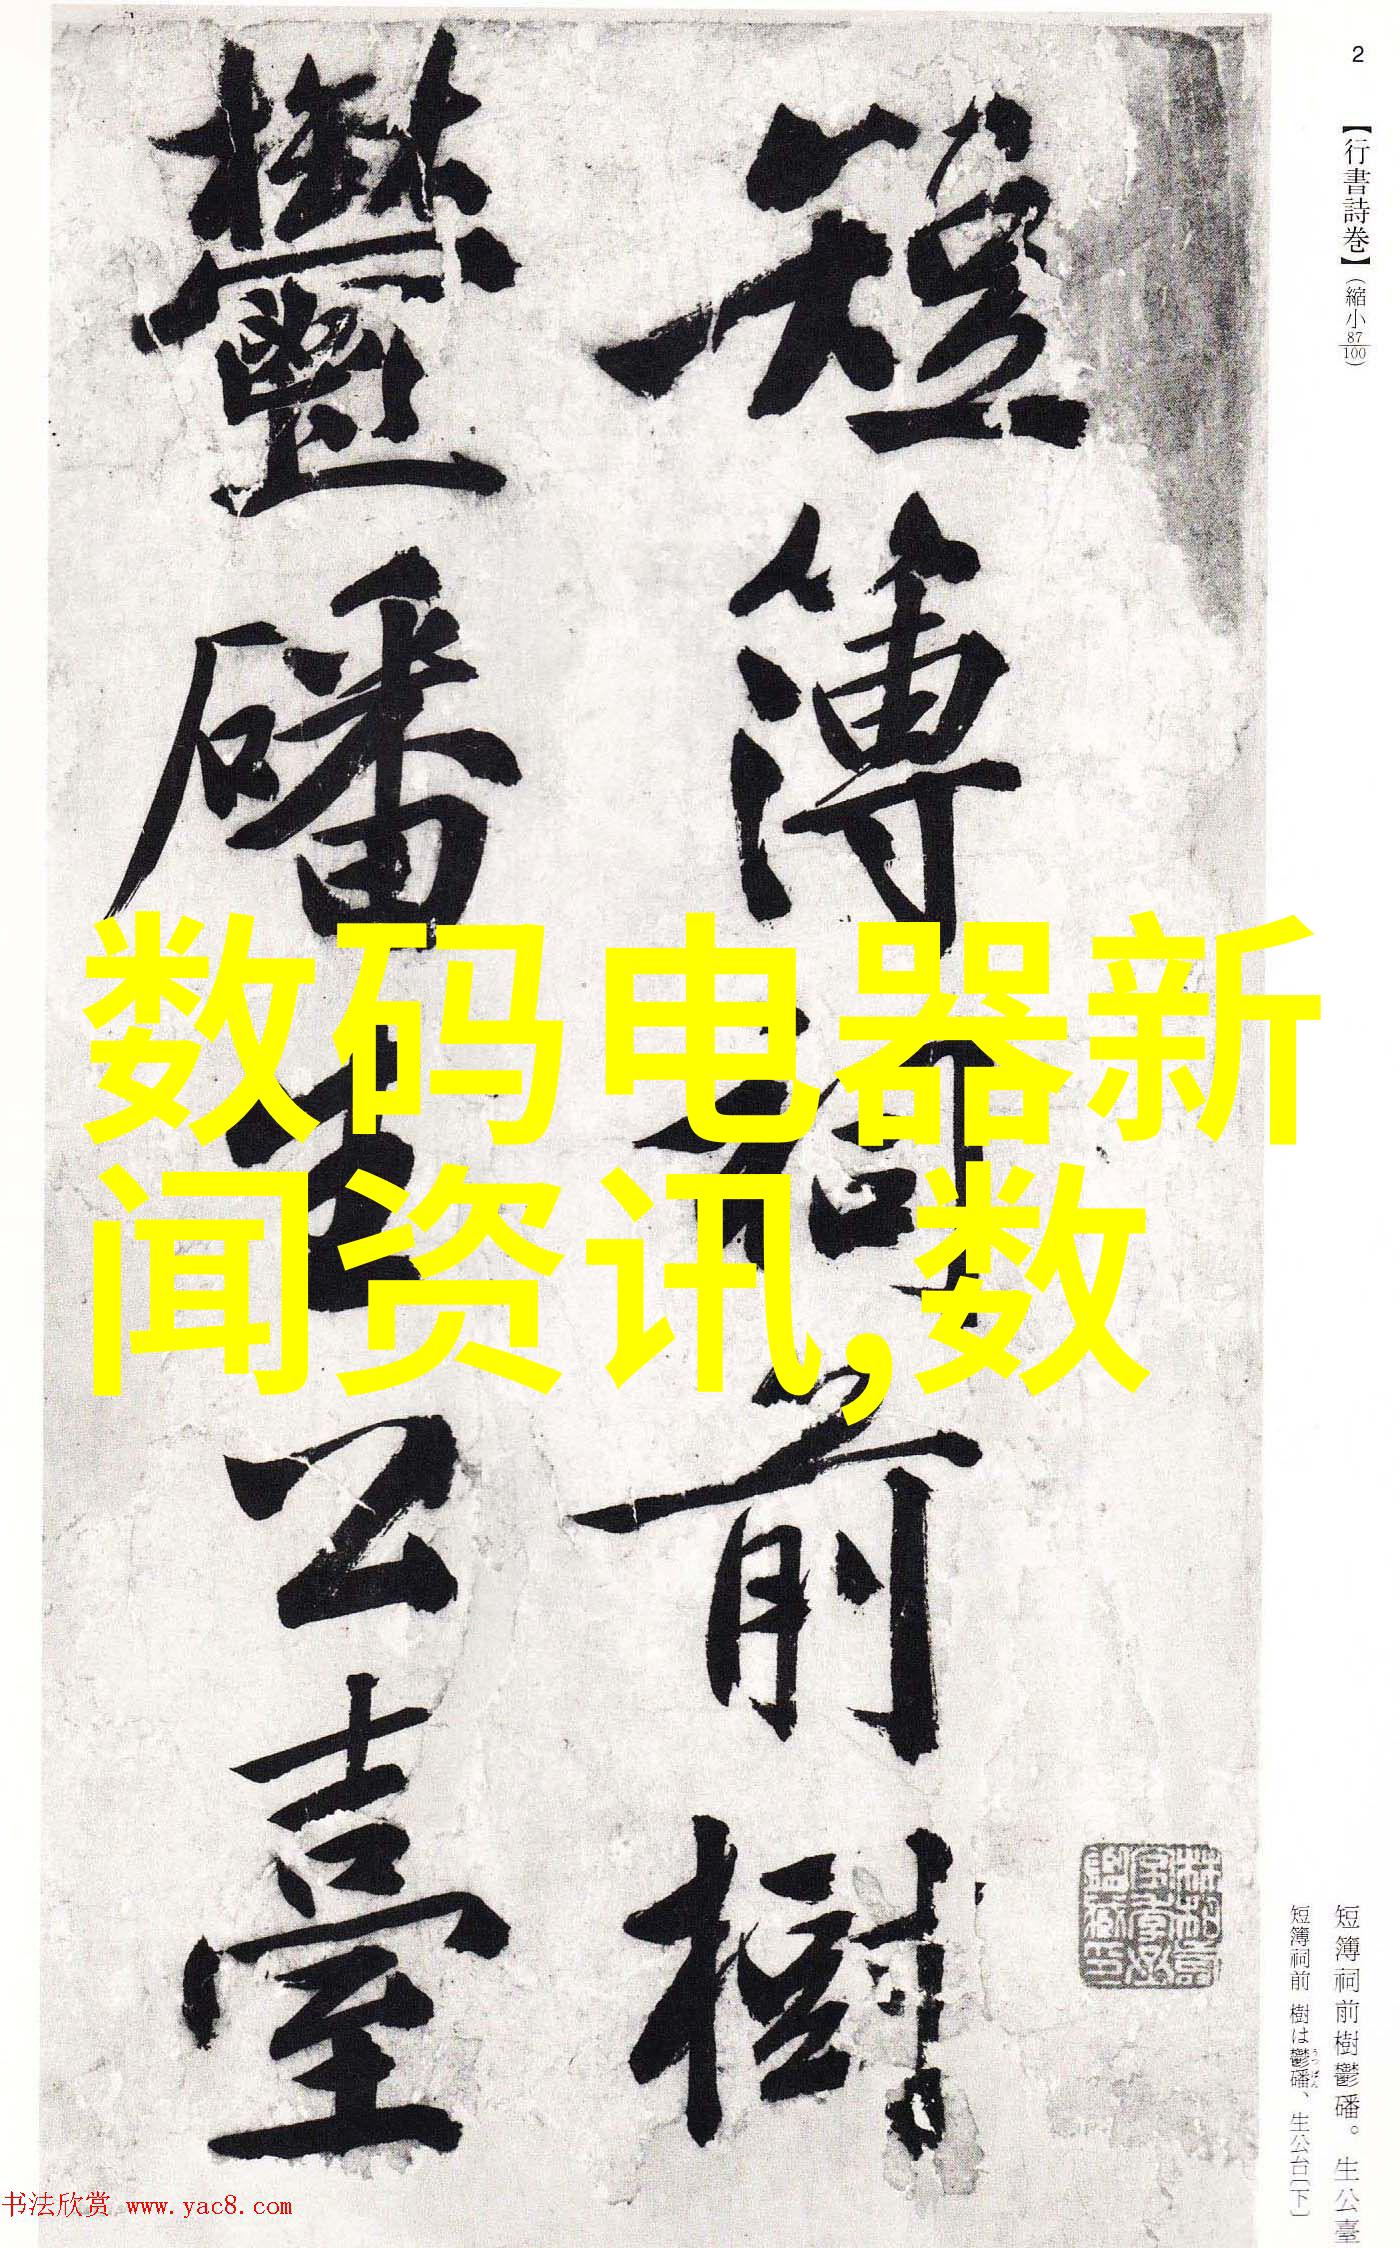 2
【行書詩巻】（縮小87/100）
短簿祠前樹
鬱磻生公臺
数码电器新
闻资讯,数
短簿祠前樹鬱磻。生公臺
短簿祠前 樹は鬱磻、生公台〔下〕
うつばん
书法欣赏 www.yac8.com